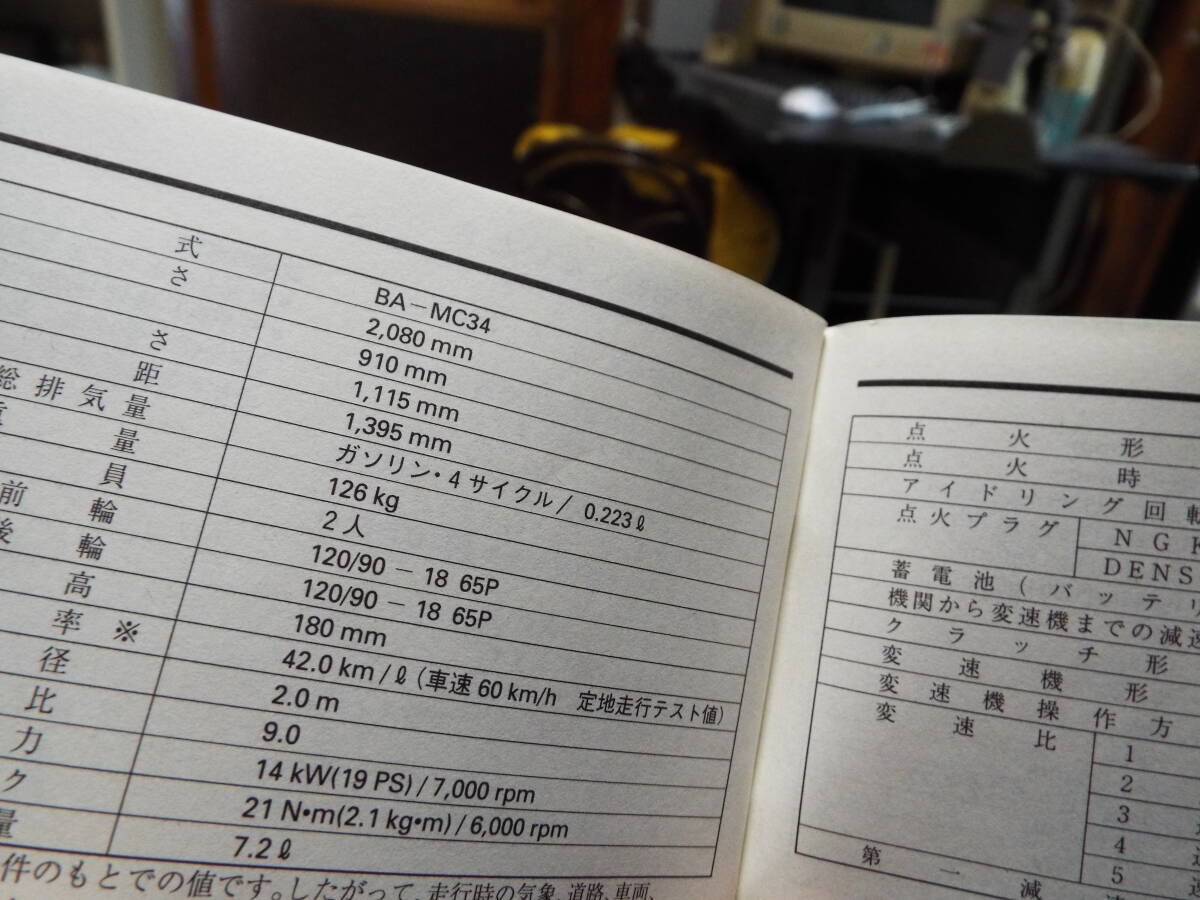 式 BA－MC34
さ 2,080 mm
910 mm
さ 1,115 mm
距 1,395 mm
総排気量 ガソリン・4サイクル / 0.223ℓ
量 126 kg
員 2人
前輪 120/90 － 18 65P
後輪 120/90 － 18 65P
高 180 mm
率※ 42.0 km/ℓ (車速60 km/h 定地走行テスト値)
径 2.0 m
比 9.0
力 14 kW(19 PS) / 7,000 rpm
ク 21 N•m(2.1 kg•m) / 6,000 rpm
量 7.2ℓ
件のもとでの値です。したがって、走行時の気象、道路、車両、
点火形
点火時
アイドリング回転
点火プラグ NGK
DENS
蓄電池(バッテリ
機関から変速機までの減速
クラッチ形
変速機形
変速機操作方
変速比 1
2
3
4
5 速
第一減速